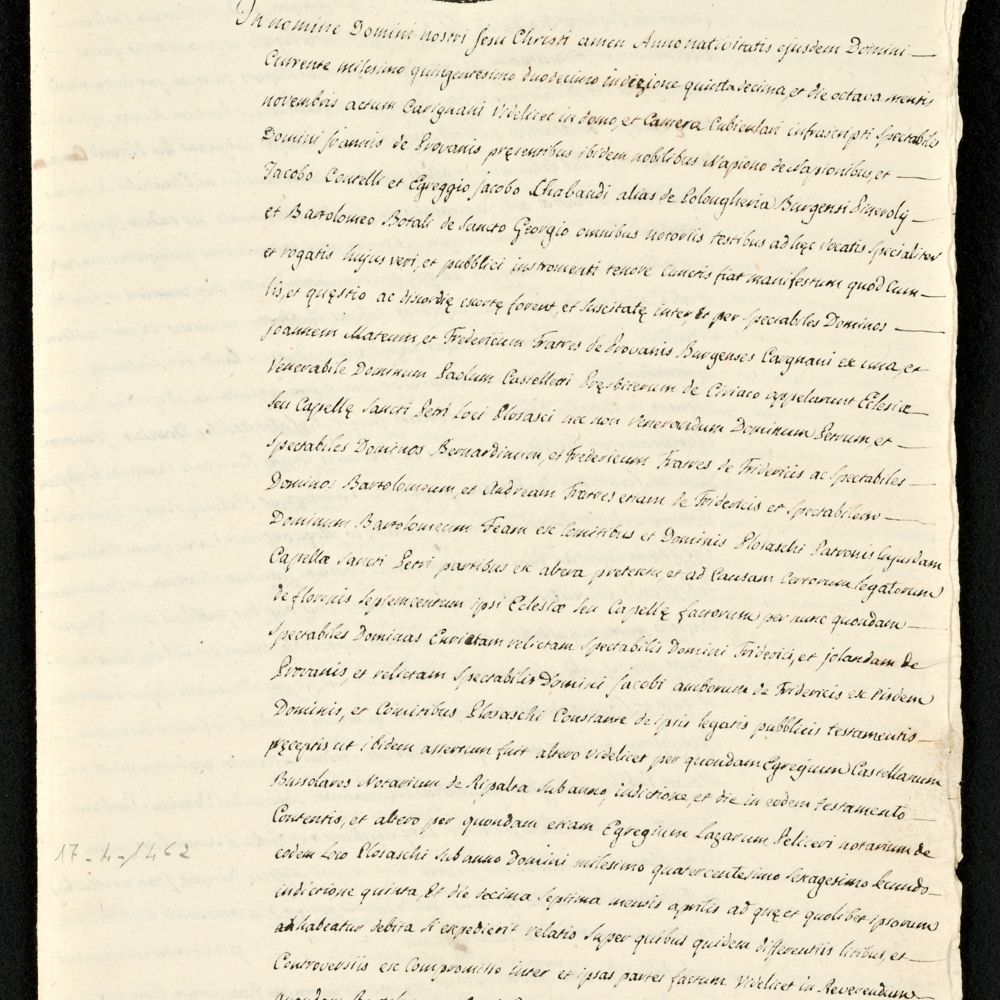 In nomine Domini nostri Jesu Christi amen Anno nativitatis ejusdem Domini
Currente milesimo quingentesimo duodecimo indizione quintadecima, et die octava mensis
novembris actum Carignani videlicet in domo, et Camera Cubiculari infrascripti spectabilis
Domini Joannis de Provanis presentibus ibidem nobilibus Napiono de Napionibus, et
Jacobo Centelli et Egreggio Jacobo Chabaudi alias de Polongheria Burgensi
et Bartolomeo Botali de Sancto Georgio omnibus notoriis testibus ad hęc vocatis specialiter
et rogatis hujus veri, et pubblici instromenti tenore Cunctis fiat manifestum quod Cum
lis, et quęstio ac discordię exortę forent, et suscitatę inter, et per spectabiles Dominos
Joannem Mateum, et Fredericum Fratres de Provanis Burgenses Cargnani ex una, et
Venerabile Dominum Paolum Castelleri Pręsbiterum de Ciriaco appelarunt Eclesię
seu Capellę Sancti Petri loci Plosasci nec non Venerandum Dominum Petrum, et
Spectabiles Dominos Bernardinum, et Fredericum Fratres de Fridericis ac Spectabiles
Dominos Bartolomeum, et Andream Fratres etiam de Fridericis et Spectabilem
Dominum Bartolomeum Feam ex Comitibus et Dominis Plosaschi Patronis hujusdam
Capellę Sancti Petri partibus ex altera pretextu, et ad Causam Certorum legatorum
de florenis septemcentum ipsi Eclesię seu Capellę factorum per nunc quondam
Spectabiles Dominas Enrietam relictam Spectabilis Domini Friderici, et Jolandam de
Provanis, et relictam Spectabilis Domini Jacobi amborum de Fridericis ex eisdem
Dominis, et Comitibus Plosaschi Constante de ipsis legatis pubblicis testamentis
pręceptis ut ibidem assertum fuit altero videlicet per quondam Egregium Castellanum
Bursolares Notarium de Ripalta sub anno, indictione, et die in eodem testamento
Contentis, et altero per quondam etiam Egregium Lazarum Pelliceri notarium de
eodem loco Plosaschi sub anno Domini milesimo quatercentesimo sexagesimo secundo
indictione quinta, et die decima septima mensis aprilis ad quę et quolibet ipsorum
habeatur debita si expedierit relatio super quibus quidem differentiis litibus, et
Controversiis ex Compromisso inter et ipsas partes factum videlicet in Reverendum
17-4-1462